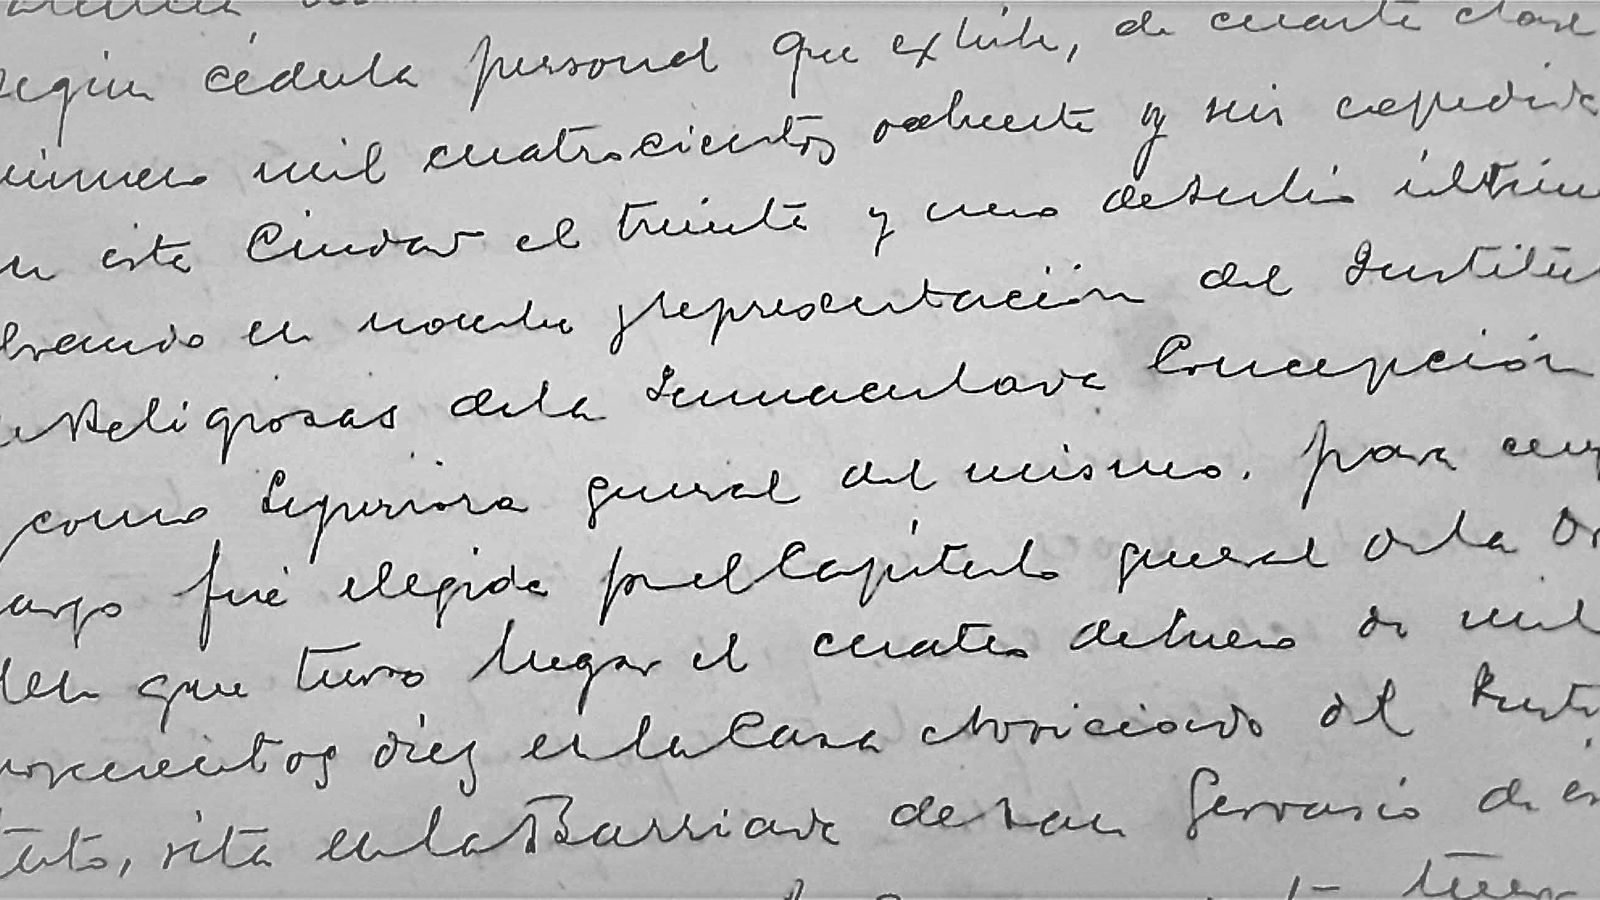 segun cédula personal que exhibe, de cuarta clase
número mil cuatrocientos ochenta y seis expedida
en esta Ciudad el treinta y uno de Julio último
obrando en nombre y representación del Institu
Religiosas de la Inmaculada Concepción
como Superiora general del mismo. para cuy
cargo fué elegida por el Capítulo general de la Or
den que tuvo lugar el cuatro de Enero de mil
novecientos diez en la Casa Noviciado del Insti
tuto, sita en la Barriada de San Gervasio de es